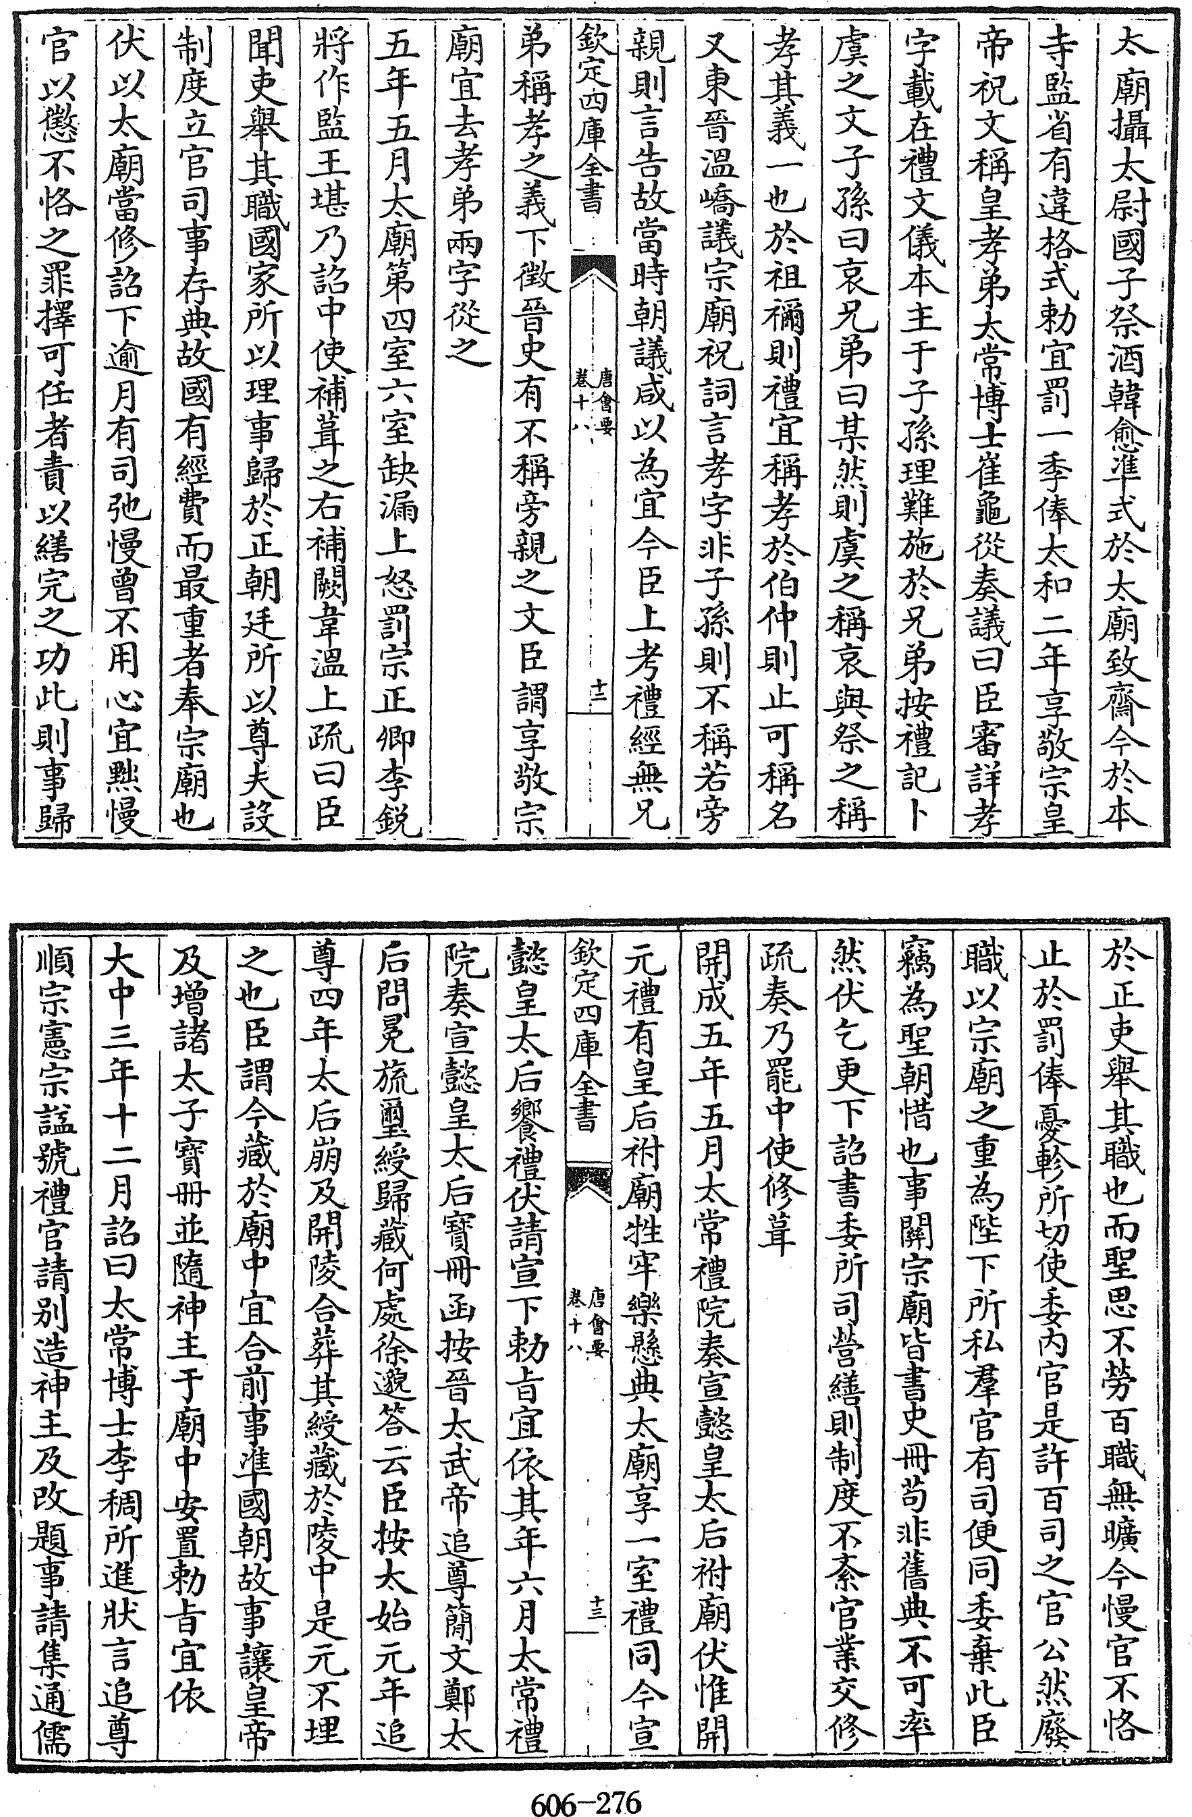 太廟攝太尉國子祭酒韓愈准式於太廟致齋今於本
寺監省有違格式勅宜罰一季俸太和二年享敬宗皇
帝祝文稱皇孝弟太常博士崔龜從奏議曰臣審詳孝
字載在禮文儀本主于子孫理難施於兄弟按禮記卜
虞之文子孫曰哀兄弟曰某然則虞之稱哀與祭之稱
孝其義一也於祖禰則禮宜稱孝於伯仲則止可稱名
又東晉溫嶠議宗廟祝詞言孝字非子孫則不稱若旁
親則言告故當時朝議咸以為宜今臣上考禮經無兄
欽定四庫全書
唐會要
卷十八
十二
弟稱孝之義下徵晉史有不稱旁親之文臣謂享敬宗
廟宜去孝弟兩字從之
五年五月太廟第四室六室缺漏上怒罰宗正卿李銳
將作監王堪乃詔中使補葺之右補闕韋溫上疏曰臣
聞吏舉其職國家所以理事歸於正朝廷所以尊夫設
制度立官司事存典故國有經費而最重者奉宗廟也
伏以太廟當修詔下逾月有司弛慢曾不用心宜黜慢
官以懲不恪之罪擇可任者責以繕完之功此則事歸
於正吏舉其職也而聖思不勞百職無曠今慢官不恪
止於罰俸憂軫所切使委內官是許百司之官公然廢
職以宗廟之重為陛下所私羣官有司便同委棄此臣
竊為聖朝惜也事關宗廟皆書史冊苟非舊典不可率
然伏乞更下詔書委所司營繕則制度不紊官業交修
疏奏乃罷中使修葺
開成五年五月太常禮院奏宣懿皇太后祔廟伏惟開
元禮有皇后祔廟牲牢樂懸典太廟享一室禮同今宣
欽定四庫全書
唐會要
卷十八
十三
懿皇太后饗禮伏請宣下勅旨宜依其年六月太常禮
院奏宣懿皇太后寶冊函按晉太武帝追尊簡文鄭太
后問冕旒璽綬歸藏何處徐邈答云臣按太始元年追
尊四年太后崩及開陵合葬其綬藏於陵中是元不埋
之也臣謂今藏於廟中宜合前事準國朝故事讓皇帝
及增諸太子寶冊並隨神主于廟中安置勅旨宜依
大中三年十二月詔曰太常博士李稠所進狀言追尊
順宗憲宗諡號禮官請别造神主及改題事請集通儒
606-276